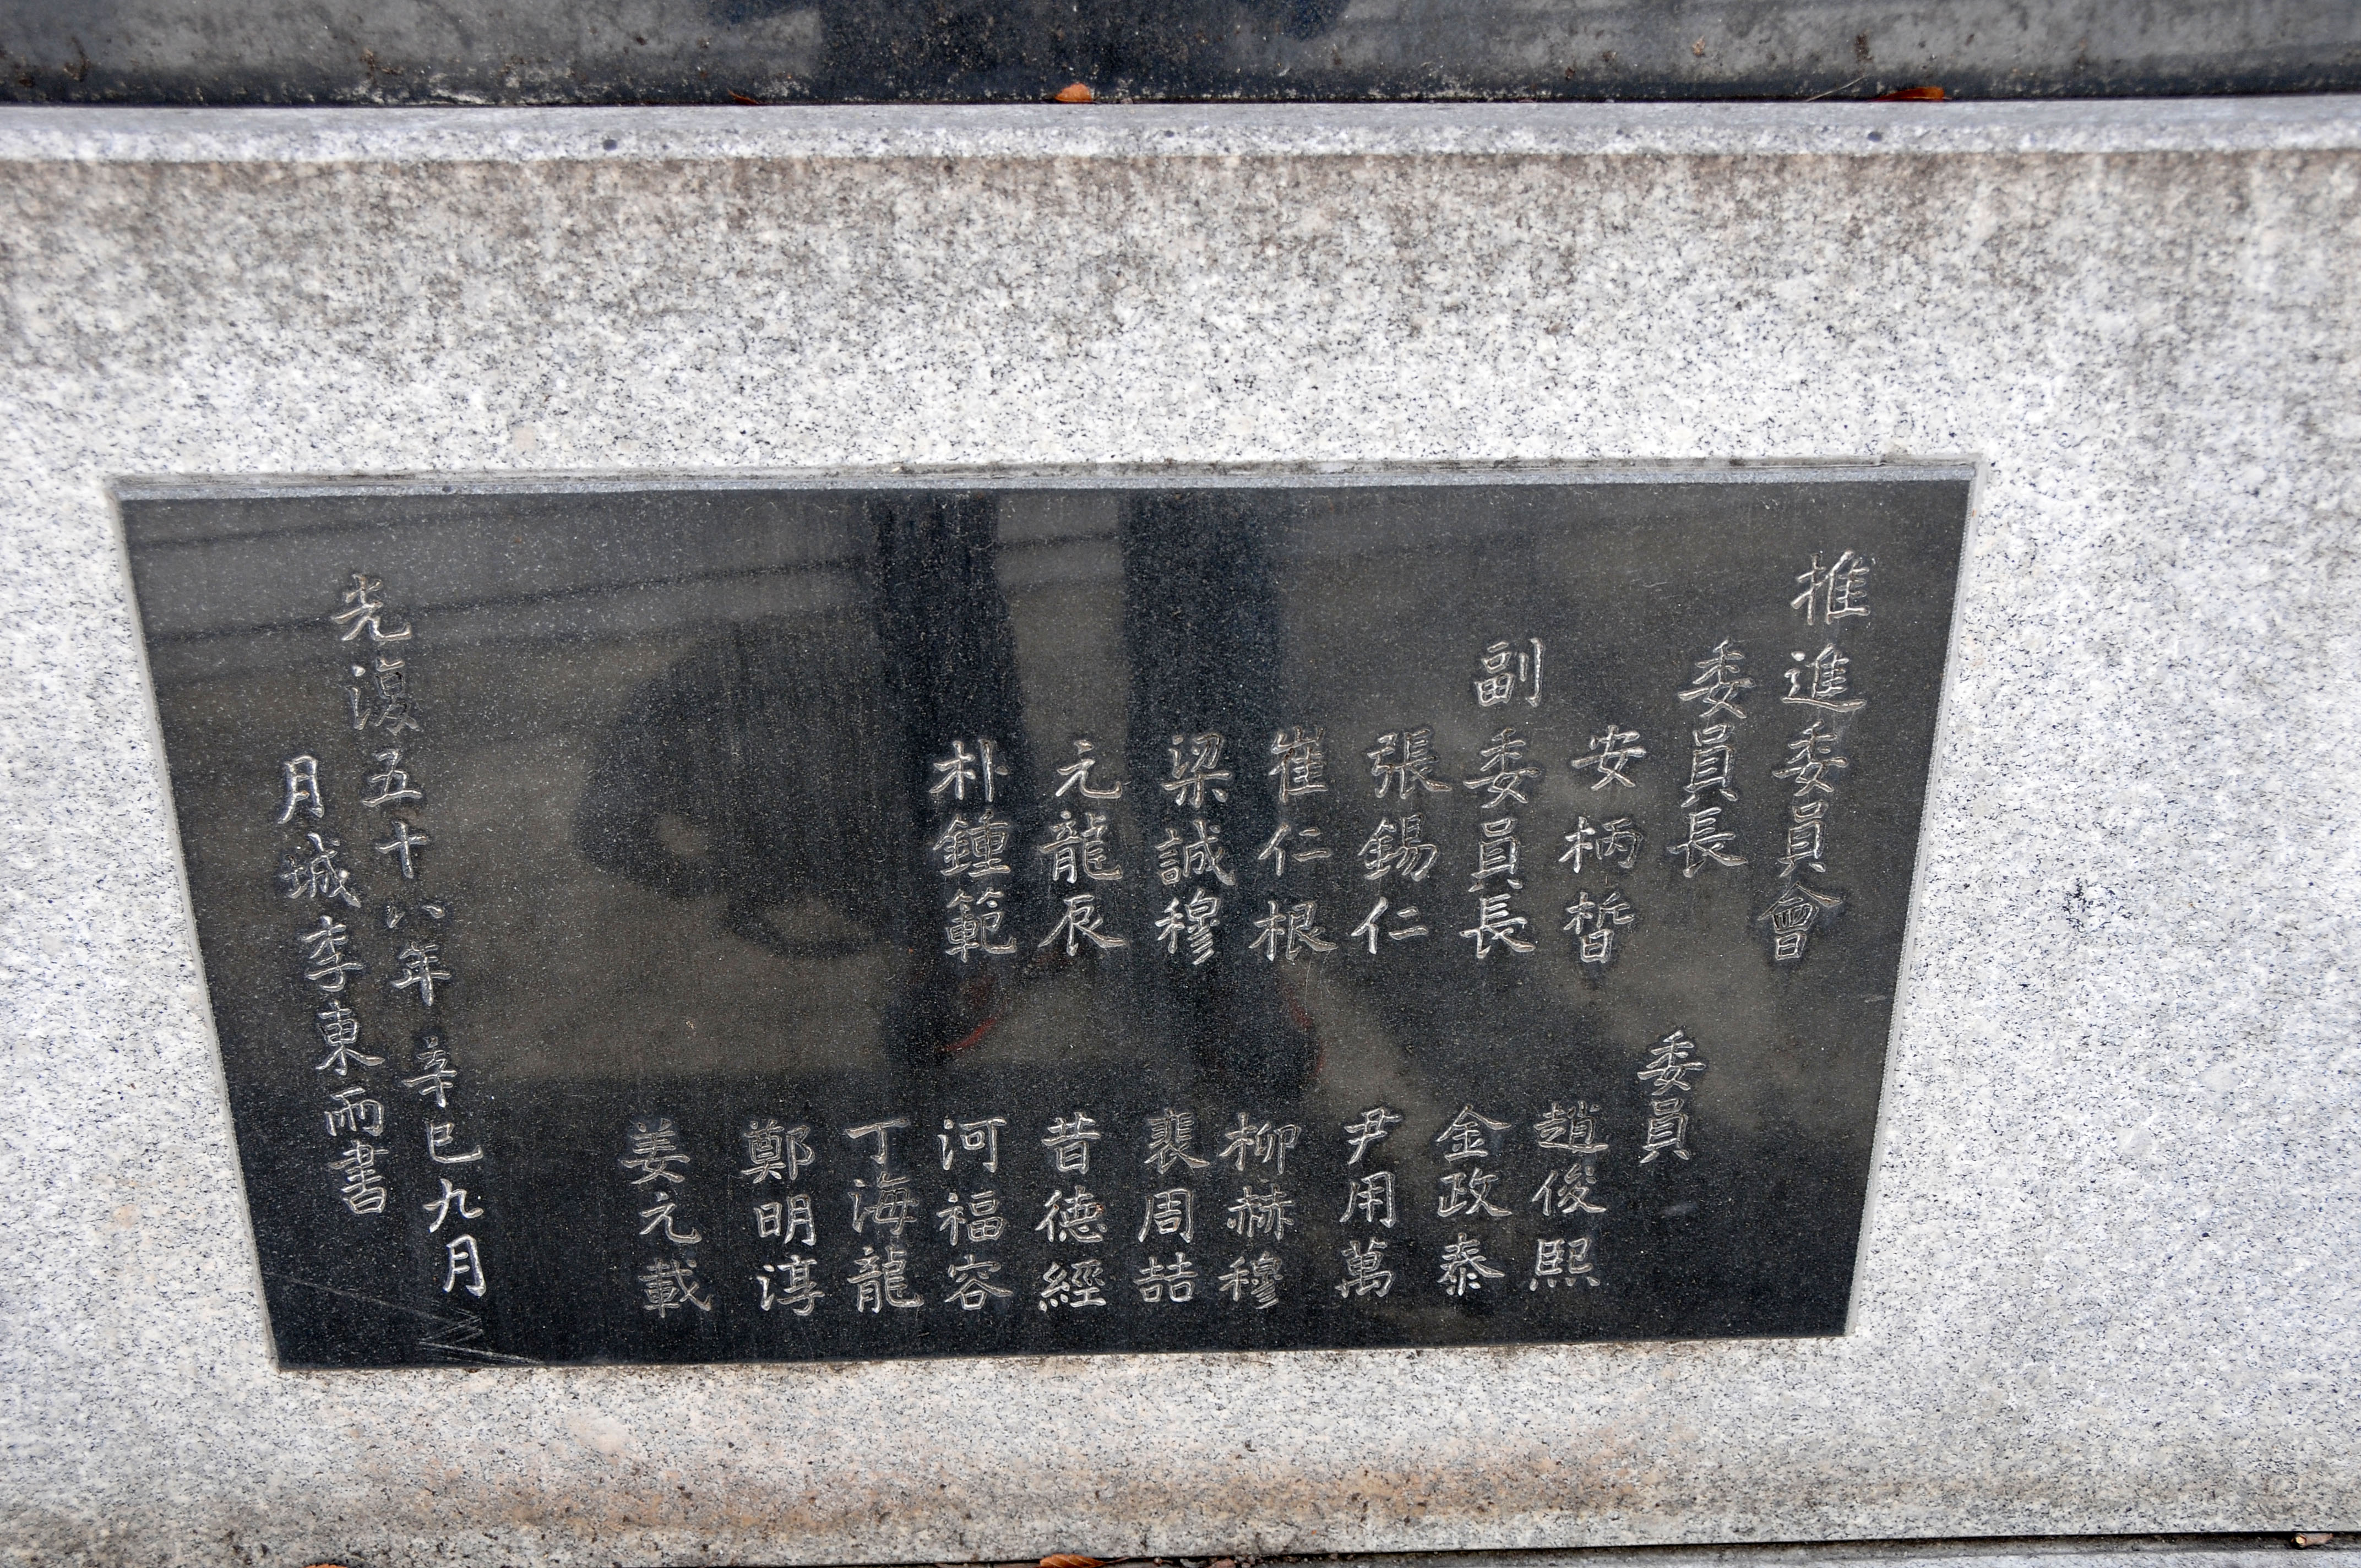 推進委員會
委員長
安柄晳
副委員長
張錫仁
崔仁根
梁誠穆
元龍辰
朴鍾範
委員
趙俊熙
金政泰
尹用萬
柳赫穆
裵周喆
昔德經
河福容
丁海龍
鄭明淳
姜元載
光復五十八年 辛巳九月
月城李東雨書